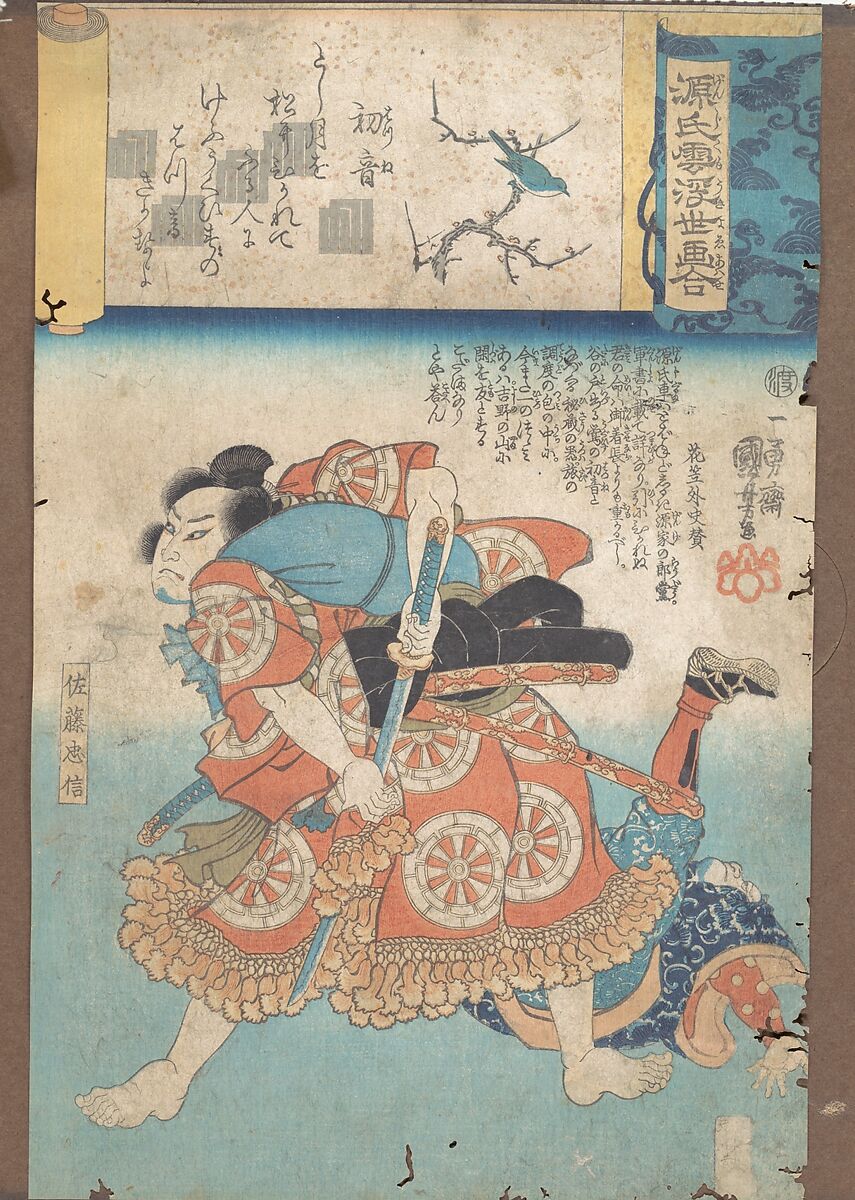 源氏雲浮世画合
初音
はつね
とし月を
松にひかれて
ふる人に
けふうくひすの
はつ音
きかせよ
渡
一勇齋
國芳画
花笠外史賛
源氏車 源家の郎黨。
軍書に載て詳なり。引にひかれぬ
君の命ハ御着長よりも重かるべし。
谷の戸出る鶯の初音と
秘蔵の
調度の包の中に。
あるハ吉野の山に
閧を友とする
とや答ん
佐藤忠信